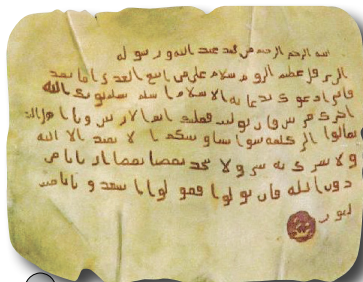 الله الرحمن الرحيم من محمد عبد الله ورسوله
عظيم الروم سلام على من اتبع الهدى اما بعد
فاني ادعوك بدعاية الاسلام اسلم تسلم يوتك الله
اجرك مرتين فان توليت فعليك اثم
تعالوا الى كلمة سوا بيننا وبينكم الا نعبد الا الله
ولا نشرك به ولا يتخذ بعضنا بعضا اربابا من
دون الله فان تولوا فقولوا اشهدوا بانا مس
لمون